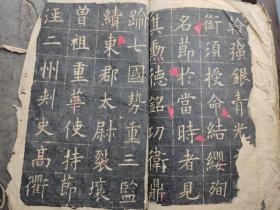 翰強銀青光
銜須授命結纓殉
名節於當時者見
其勳德銘功衛鼎
踰七國勢重三監
績東郡太尉裂壤
曾祖重華使持節
涇二州刺史高衢